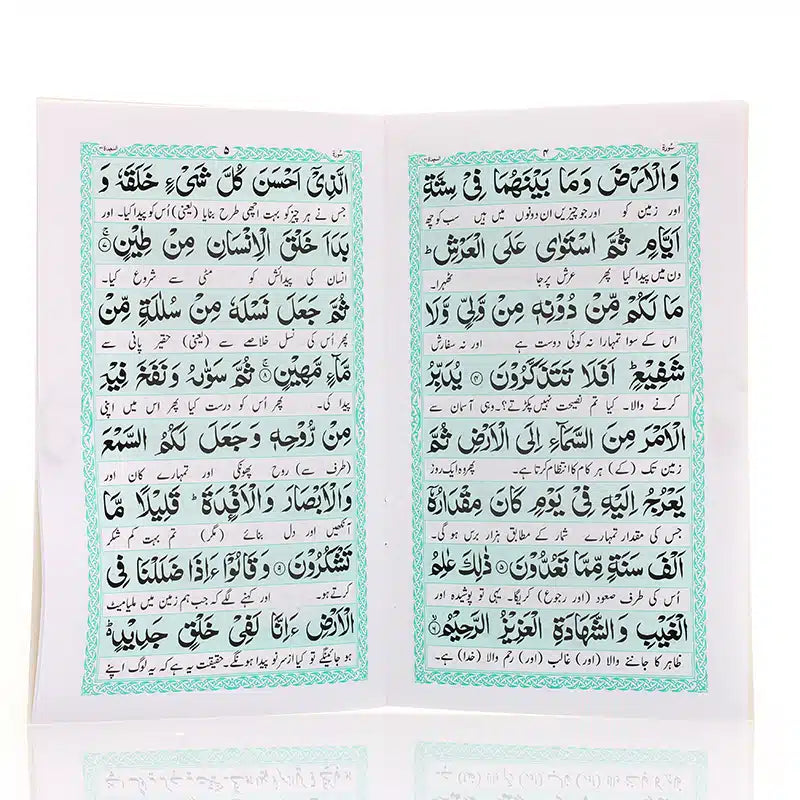 سُوْرَة ۴ السجدة ۳۲
وَالْاَرْضَ وَمَا بَيْنَهُمَا فِيْ سِتَّةِ
اور زمین کو اور جو چیزیں ان دونوں میں ہیں سب کو چھ
اَيَّامٍ ثُمَّ اسْتَوٰى عَلَى الْعَرْشِ ؕ
دن میں پیدا کیا پھر عرش پر جا ٹھہرا۔
مَا لَكُمْ مِّنْ دُوْنِهٖ مِنْ وَّلِيٍّ وَّلَا
اس کے سوا تمہارا نہ کوئی دوست ہے اور نہ سفارش
شَفِيْعٍ ؕ اَفَلَا تَتَذَكَّرُوْنَ ۴ يُدَبِّرُ
کرنے والا۔ کیا تم نصیحت نہیں پکڑتے؟۔ وہی آسمان سے
الْاَمْرَ مِنَ السَّمَآءِ اِلَى الْاَرْضِ ثُمَّ
زمین تک (کے) ہر کام کا انتظام کرتا ہے۔ پھر وہ ایک روز
يَعْرُجُ اِلَيْهِ فِيْ يَوْمٍ كَانَ مِقْدَارُهٗٓ
جس کی مقدار تمہارے شمار کے مطابق ہزار برس ہو گی۔
اَلْفَ سَنَةٍ مِّمَّا تَعُدُّوْنَ ۵ ذٰلِكَ عٰلِمُ
اُس کی طرف صعود (اور رجوع) کریگا۔ یہی تو پوشیدہ اور
الْغَيْبِ وَالشَّهَادَةِ الْعَزِيْزُ الرَّحِيْمُ ۶
ظاہر کا جاننے والا (اور) غالب (اور) رحم والا (خدا) ہے۔
سُوْرَة ۵ السجدة ۳۲
الَّذِيْٓ اَحْسَنَ كُلَّ شَيْءٍ خَلَقَهٗ وَ
جس نے ہر چیز کو بہت اچھی طرح بنایا (یعنی) اُس کو پیدا کیا۔ اور
بَدَاَ خَلْقَ الْاِنْسَانِ مِنْ طِيْنٍ ۷
انسان کی پیدائش کو مٹی سے شروع کیا۔
ثُمَّ جَعَلَ نَسْلَهٗ مِنْ سُلٰلَةٍ مِّنْ
پھر اُس کی نسل خلاصے سے (یعنی) حقیر پانی سے
مَّآءٍ مَّهِيْنٍ ۸ ثُمَّ سَوّٰىهُ وَنَفَخَ فِيْهِ
پیدا کی۔ پھر اُس کو درست کیا پھر اس میں اپنی
مِنْ رُّوْحِهٖ وَجَعَلَ لَكُمُ السَّمْعَ
(طرف سے) روح پھونکی اور تمہارے کان اور
وَالْاَبْصَارَ وَالْاَفْـِٕدَةَ ؕ قَلِيْلًا مَّا
آنکھیں اور دل بنائے (مگر) تم بہت کم شکر
تَشْكُرُوْنَ ۹ وَقَالُوْٓا ءَاِذَا ضَلَلْنَا فِي
کرتے ہو۔ اور کہنے لگے کہ جب ہم زمین میں ملیامیٹ
الْاَرْضِ ءَاِنَّا لَفِيْ خَلْقٍ جَدِيْدٍ ؕ
ہو جائینگے تو کیا ازسرنو پیدا ہونگے۔ حقیقت یہ ہے کہ یہ لوگ اپنے